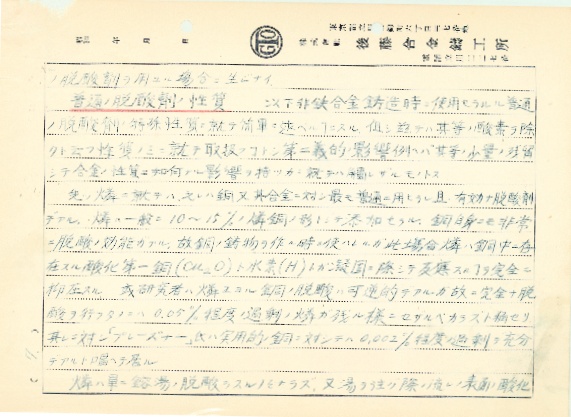 昭和 年 月 日
GTO
株式会社 後藤合金鋳工所
ノ脱酸剤ヲ用フル場合ニ生ジナイ
普通ノ脱酸剤ノ性質 以下非鉄合金鋳造時ニ使用セラルル普通
ノ脱酸剤ノ特殊性質ニ就テ簡単ニ述ベルコトニスル 但シ茲デハ其等ノ酸素ヲ除
クト云フ性質ノミニ就テ取扱フコトトシ第二義的影響例ヘバ其等ノ少量ノ残留
シテ合金ノ性質ニ如何ナル影響ヲ持ツカニ就テハ触レザルモノトス
先ヅ燐ニ就テハ 之レハ銅又其合金ニ対シ最モ普通ニ用ヒラレ且有効ナ脱酸剤
デアル、燐ハ一般ニ10〜15%ノ燐銅ノ形ニテ添加セラル、銅自身ニモ非常
ニ脱酸ノ効能ガアル、故銅ノ鋳物ヲ作ル時ニ使ハレルガ此場合燐ハ銅中ニ存
在スル酸化第一銅(Cu₂O)ト水素(H)トガ凝固ノ際ニテ反応スルヲ完全ニ
抑圧スル 或研究者ハ燐ニヨル銅ノ脱酸ハ可逆的デアルガ故ニ完全ナ脱
酸ヲ行フタメニハ0.05%程度ノ過剰ノ燐ガ残ル様ニセザルベカラズト称セリ
其レニ対シ「ブレーズナー」氏ハ実用的ノ銅ニ対シテハ0.002%程度ノ過剰デ充分
デアルト唱ヘテ居ル
燐ハ単ニ鎔湯ノ脱酸ヲスルノミナラズ、又湯ヲ注グ際ノ流レノ表面ノ酸化